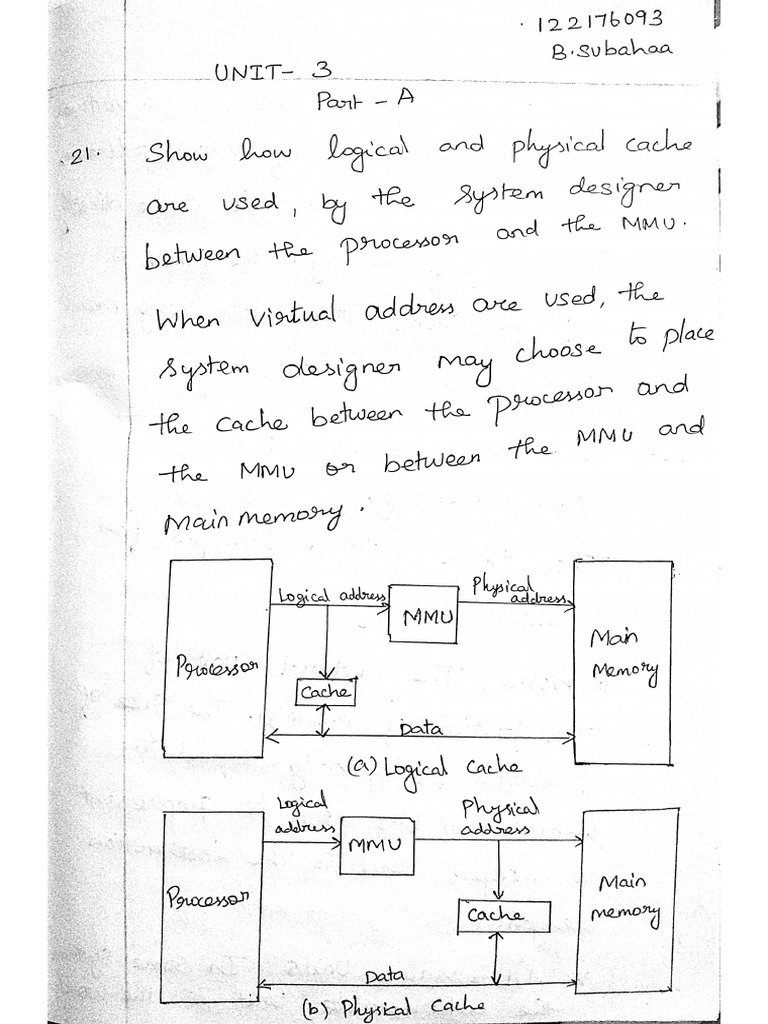 122176093
B.Subahaa
UNIT- 3
Part - A
21. Show how logical and physical cache
are used, by the system designer
between the processor and the MMU.
When virtual address are used, the
system designer may choose to place
the cache between the processor and
the MMU or between the MMU and
Main memory.
Logical address
Physical
address
MMU
Processor
Main
Memory
Cache
Data
(a) Logical Cache
Logical
address
Physical
address
MMU
Processor
Main
memory
Cache
Data
(b) Physical Cache